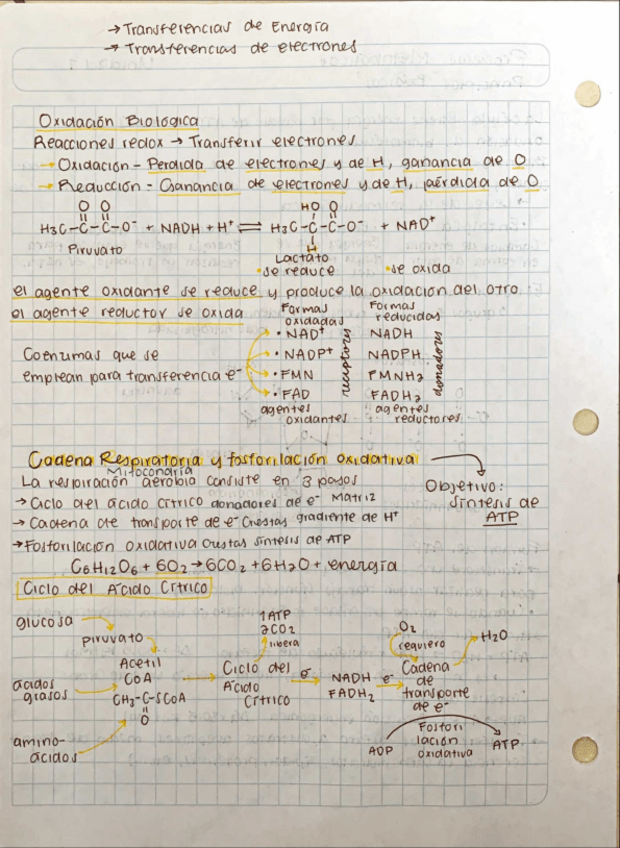 → Transferencias de Energía
→ Transferencias de electrones
Oxidación Biológica
Reacciones redox → Transferir electrones
→ Oxidación - Perdida de electrones y de H, ganancia de O
→ Reducción - Ganancia de electrones y de H, pérdida de O
O O
H3C-C-C-O⁻ + NADH + H⁺ ⇌ H3C-C-C-O⁻ + NAD⁺
HO O
H
Piruvato
Lactato
se reduce
se oxida
el agente oxidante se reduce y produce la oxidación del otro
el agente reductor se oxida
Formas oxidadas
Formas reducidas
Coenzimas que se
emplean para transferencia e⁻
• NAD⁺ NADH
• NADP⁺ NADPH
• FMN FMNH2
• FAD FADH2
receptores
donadores
agentes oxidantes
agentes reductores
Cadena Respiratoria y fosforilación oxidativa
Mitocondria
La respiración aerobia consiste en 3 pasos
→ Ciclo del ácido cítrico donadores de e⁻ Matriz
→ Cadena de transporte de e⁻ Crestas gradiente de H⁺
→ Fosforilación oxidativa Crestas síntesis de ATP
Objetivo:
síntesis de
ATP
C6H12O6 + 6O2 → 6CO2 + 6H2O + energía
Ciclo del Ácido Cítrico
glucosa
piruvato
ácidos
grasos
amino-
ácidos
Acetil
CoA
CH3-C-SCoA
O
1 ATP
2CO2
libera
Ciclo del
Ácido
Cítrico
e⁻
NADH
FADH2
e⁻
O2
requiero
H2O
Cadena
de
transporte
de e⁻
ADP
Fosfori
lación
oxidativa
ATP